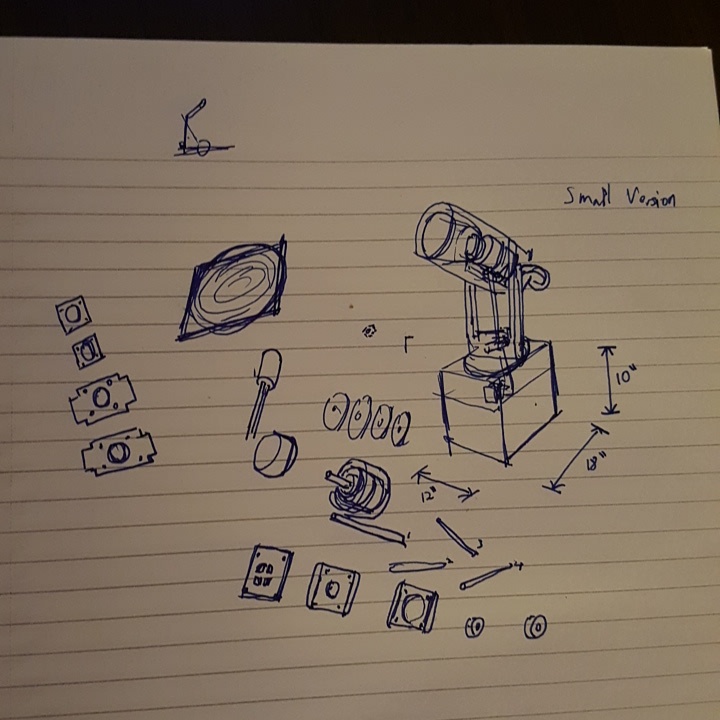 Small Version
10"
18"
12"
1
2
3
4